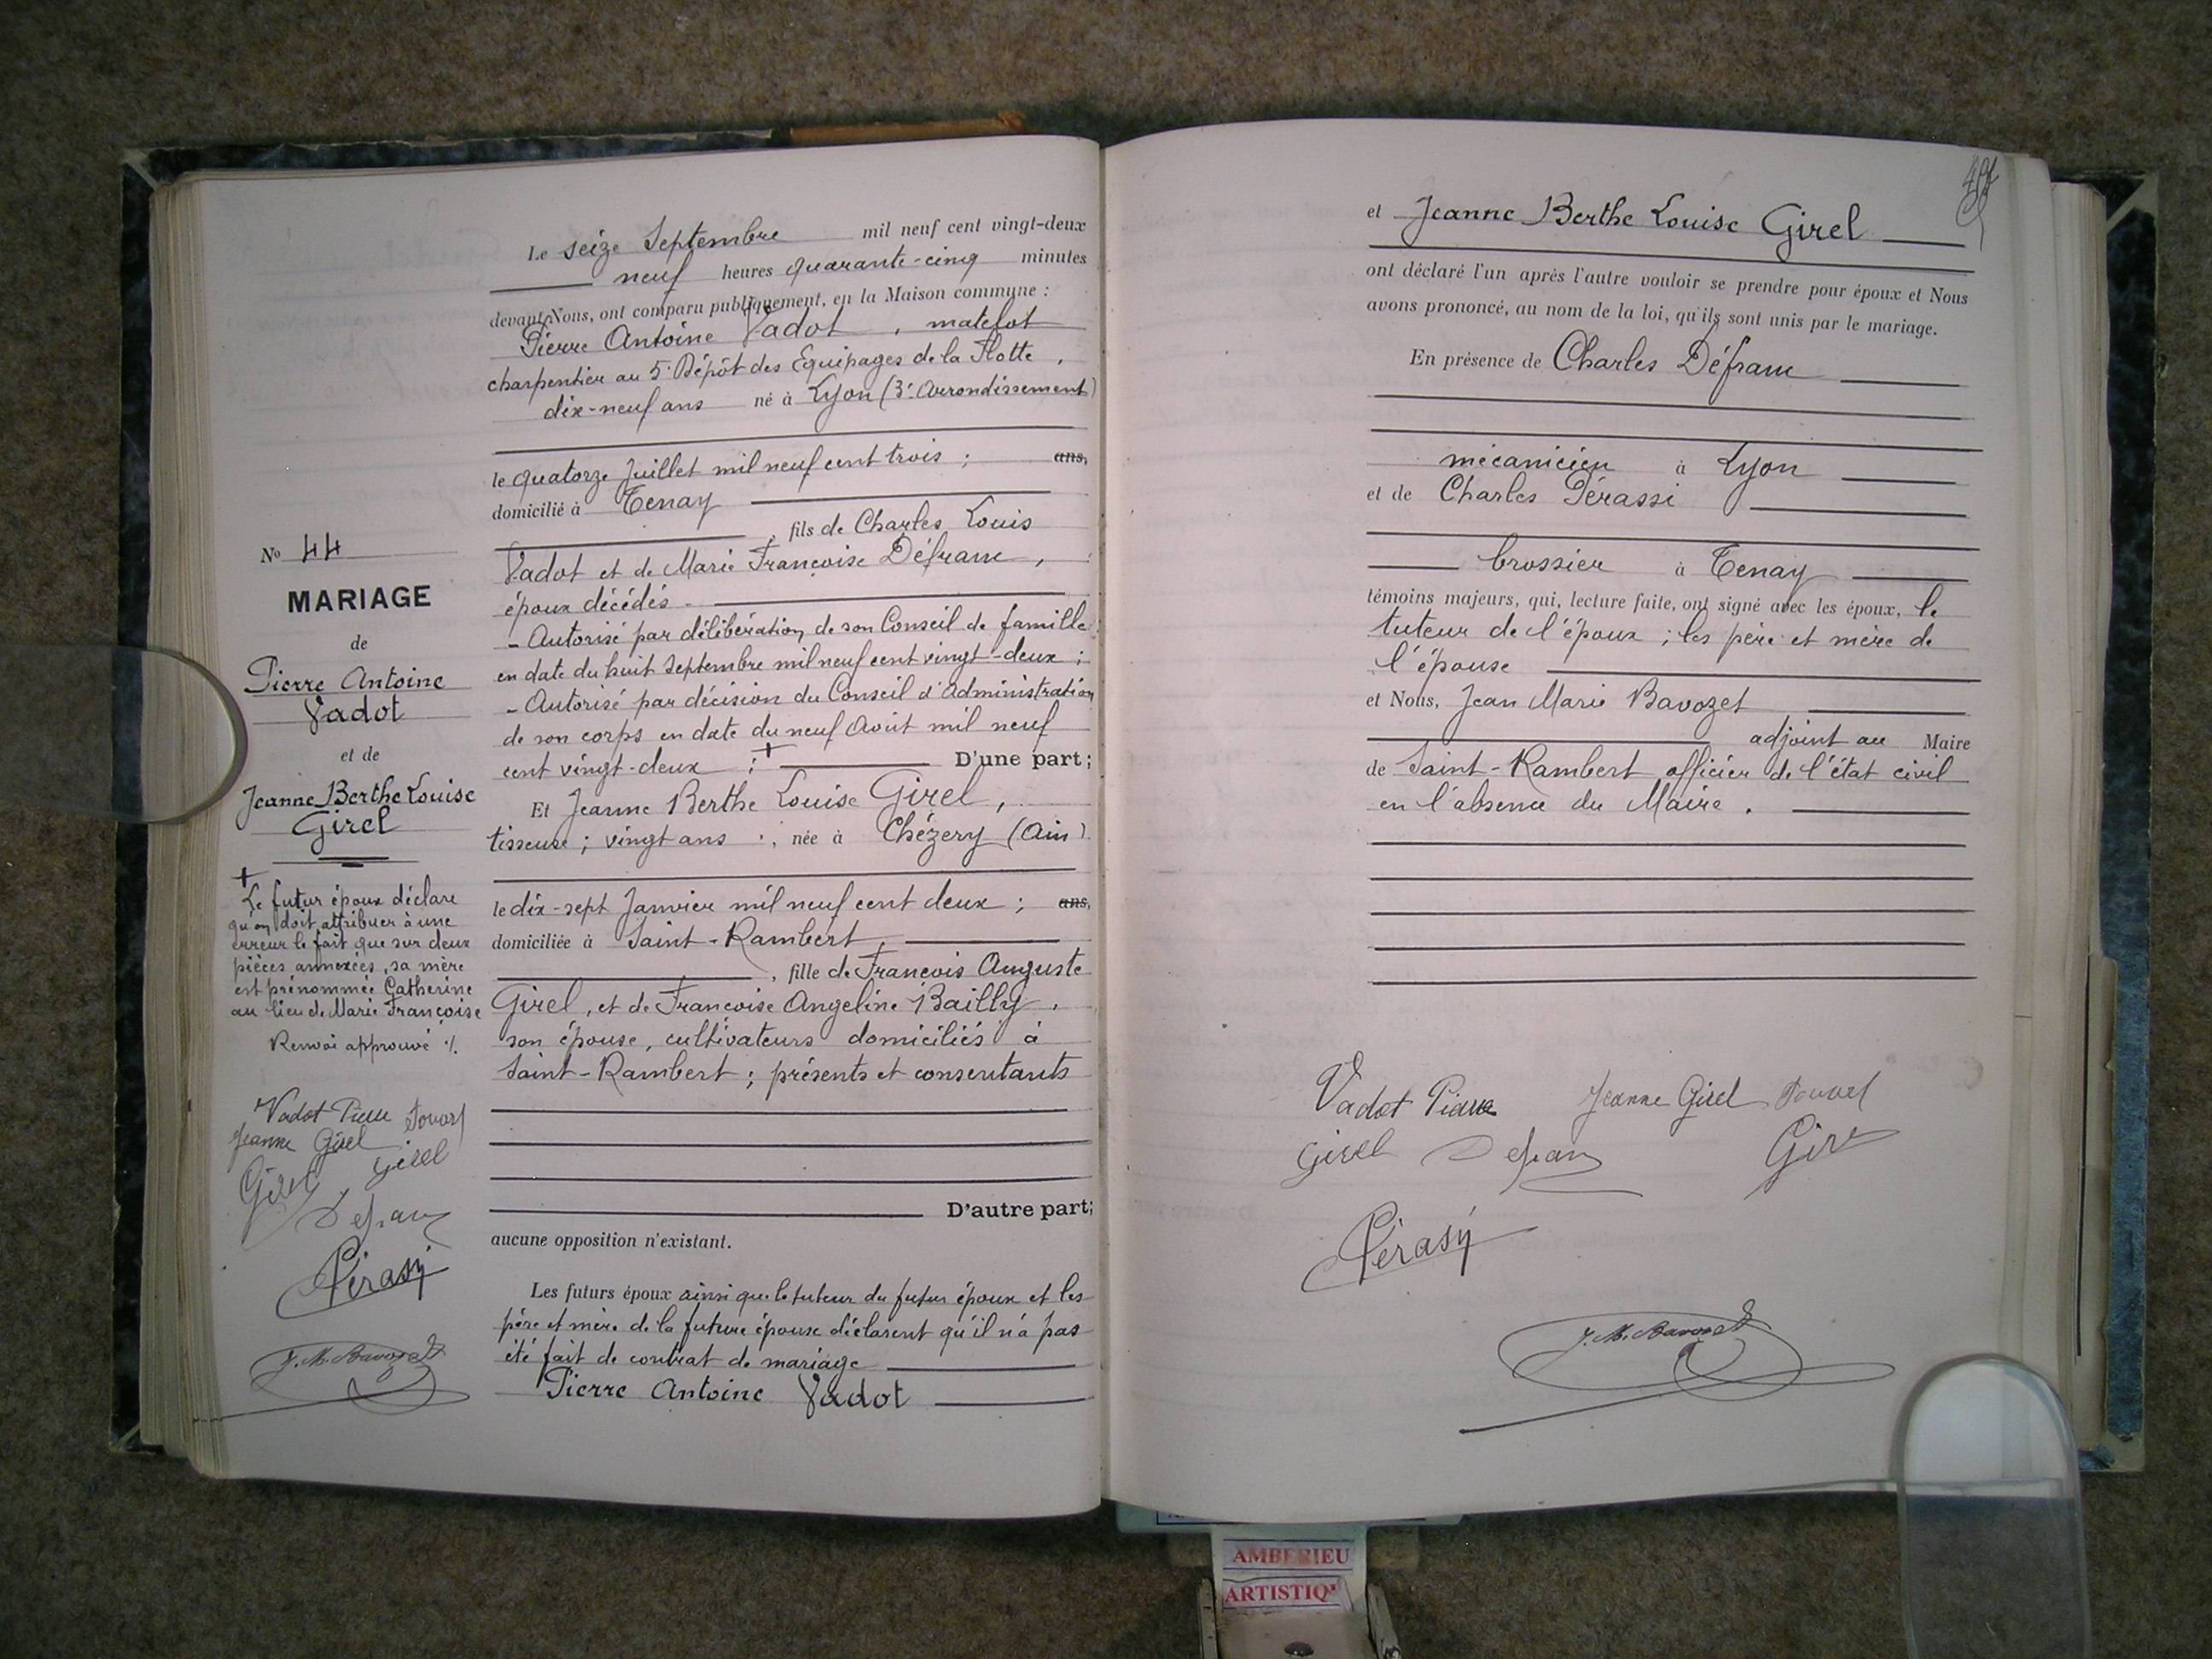 Le seize Septembre mil neuf cent vingt-deux
neuf heures quarante-cinq minutes
devant Nous, ont comparu publiquement, en la Maison commune :
Pierre Antoine Vadot, matelot
charpentier au 5e Dépôt des Equipages de la Flotte,
dix-neuf ans né à Lyon (3e Arrondissement)
le quatorze Juillet mil neuf cent trois ; ans,
domicilié à Tenay
, fils de Charles Louis
Vadot et de Marie Françoise Défranc,
époux décédés.
- Autorisé par délibération de son Conseil de famille
en date du huit Septembre mil neuf cent vingt-deux ;
- Autorisé par décision du Conseil d'Administration
de son corps en date du neuf Août mil neuf
cent vingt-deux ; + D'une part;
Et Jeanne Berthe Louise Girel,
tisseuse ; vingt ans ; née à Chézery (Ain)
le dix-sept Janvier mil neuf cent deux ; ans,
domiciliée à Saint-Rambert,
, fille de François Auguste
Girel, et de Françoise Angeline Bailly,
son épouse, cultivateurs domiciliés à
Saint-Rambert ; présents et consentants
D'autre part;
aucune opposition n'existant.
Les futurs époux ainsi que le tuteur du futur époux et les
père et mère de la future épouse déclarent qu'il n'a pas
été fait de contrat de mariage
Pierre Antoine Vadot
No 44
MARIAGE
de
Pierre Antoine
Vadot
et de
Jeanne Berthe Louise
Girel
+
Le futur époux déclare
qu'on doit attribuer à une
erreur le fait que sur deux
pièces annexées, sa mère
est prénommée Catherine
au lieu de Marie Françoise
Renvoi approuvé ./.
Vadot Pierre
Jeanne Girel
Girel Girel
Defranc
Pérassi
J. M. Bavozet
et Jeanne Berthe Louise Girel
ont déclaré l'un après l'autre vouloir se prendre pour époux et Nous
avons prononcé, au nom de la loi, qu'ils sont unis par le mariage.
En présence de Charles Défranc
mécanicien à Lyon
et de Charles Pérassi
brossier à Tenay
témoins majeurs, qui, lecture faite, ont signé avec les époux, le
tuteur de l'époux ; les père et mère de
l'épouse
et Nous, Jean Marie Bavozet
adjoint au Maire
de Saint-Rambert officier de l'état civil
en l'absence du Maire.
Vadot Pierre Jeanne Girel
Girel Defranc Girel
Pérassi
J. M. Bavozet
AMBERIEU
ARTISTIQ'